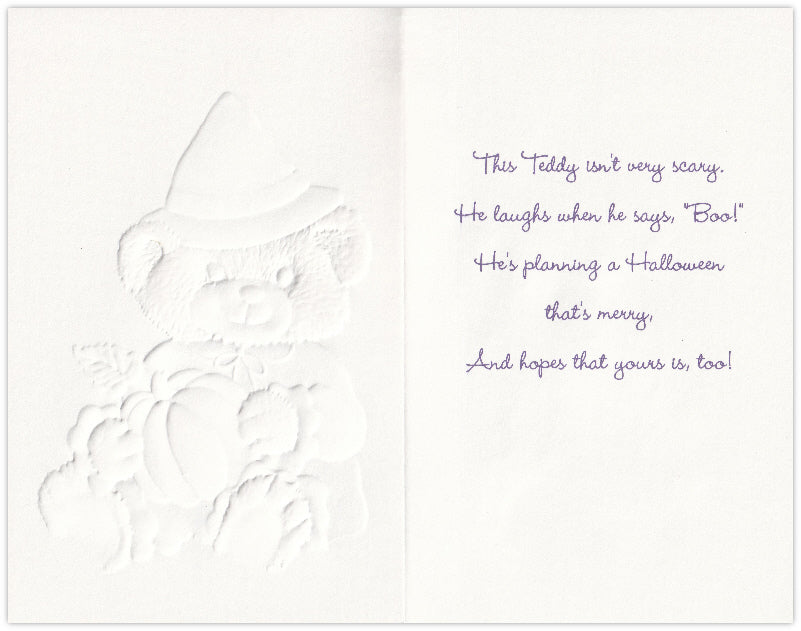 This Teddy isn't very scary.
He laughs when he says, "Boo!"
He's planning a Halloween
that's merry,
And hopes that yours is, too!